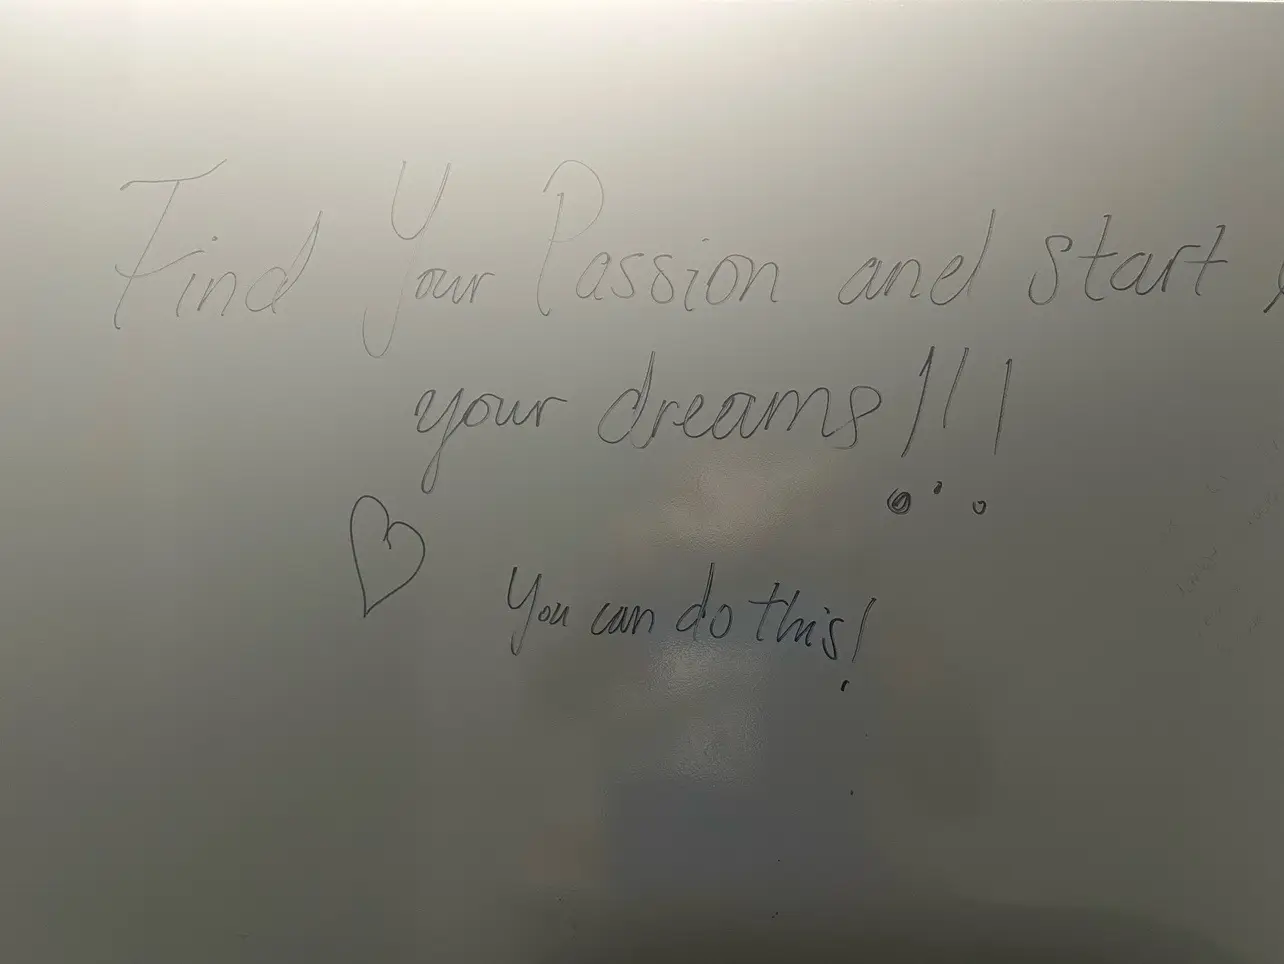 Find Your Passion and start
your dreams!!!
You can do this!